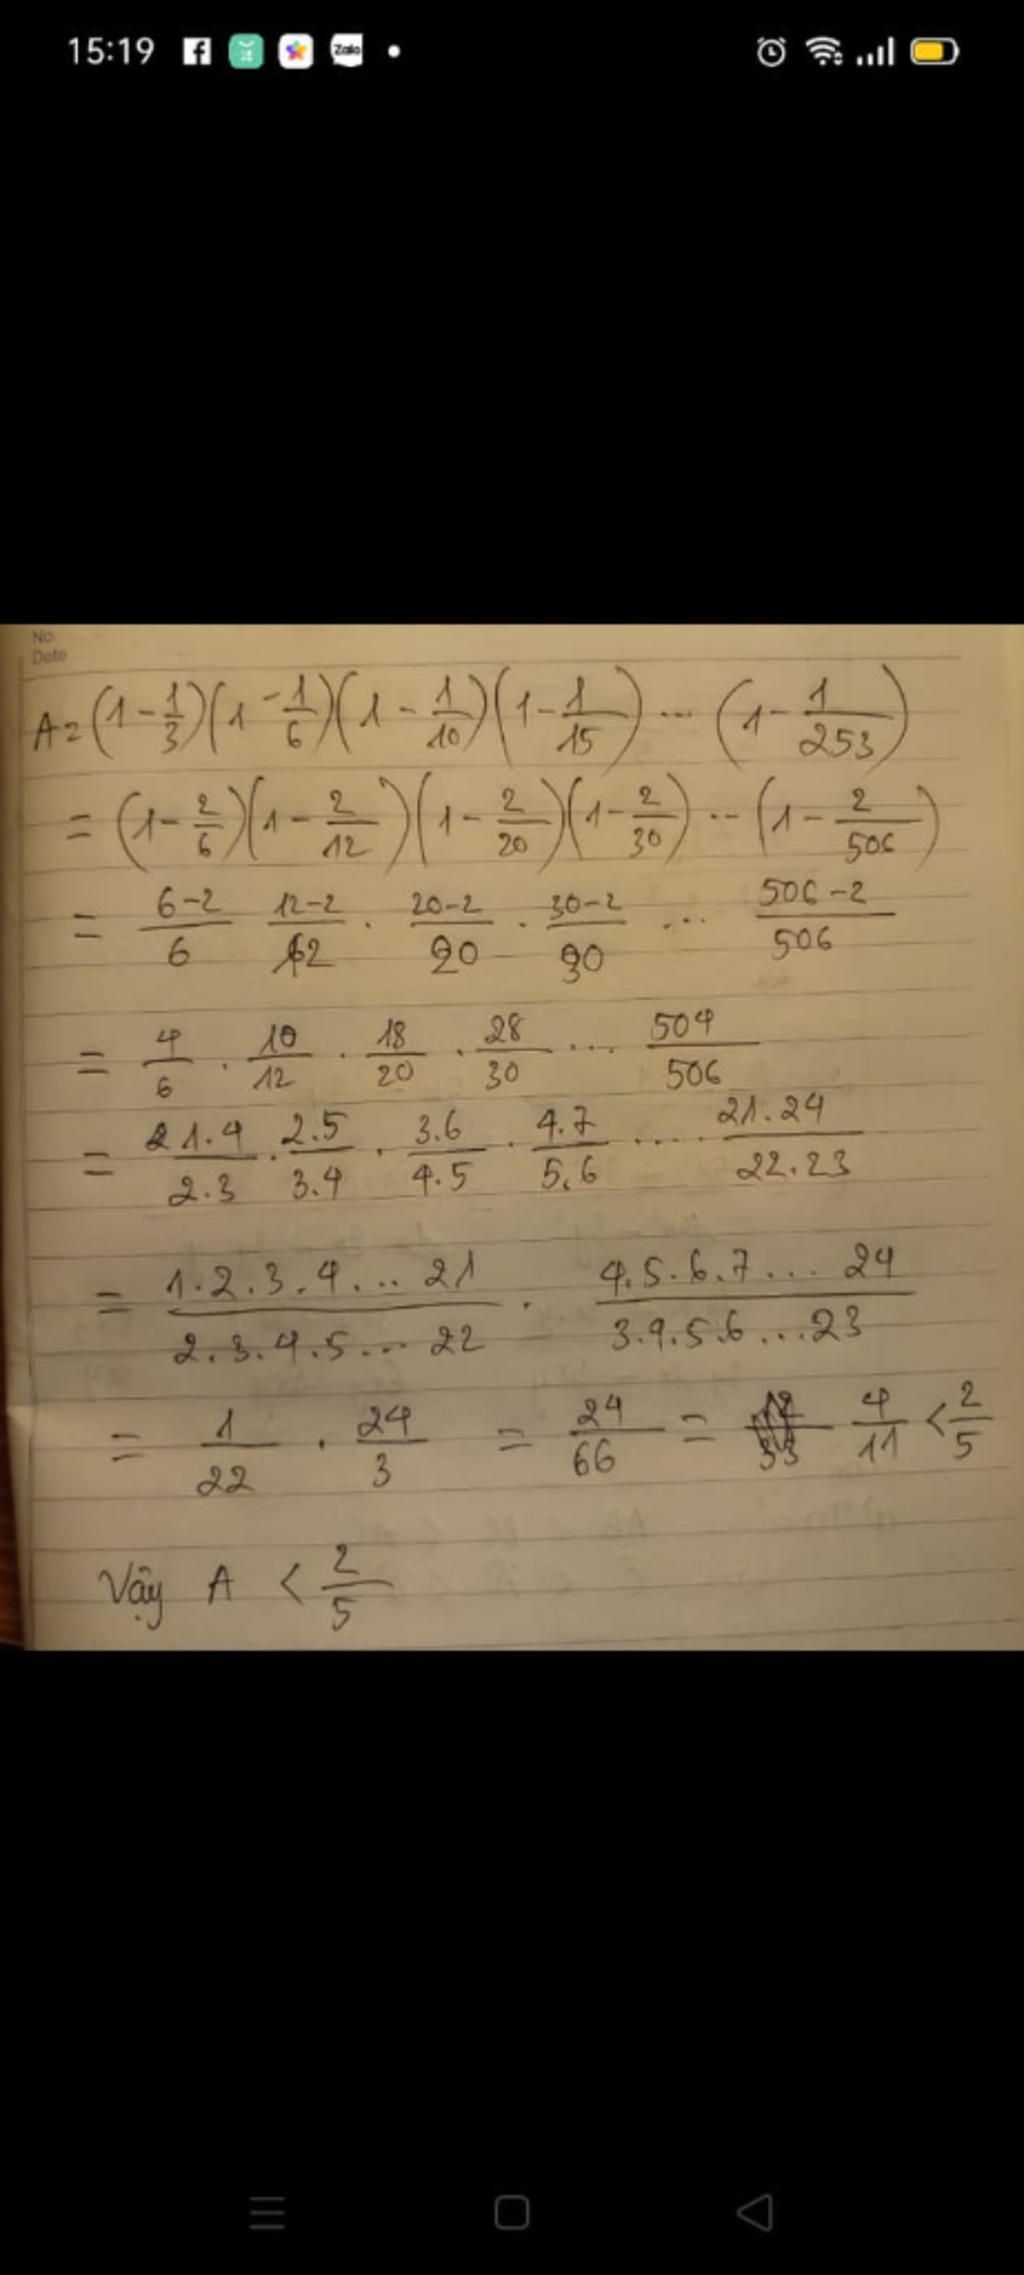 15:19 Zalo
No
Date
A = (1 - 1/3)(1 - 1/6)(1 - 1/10)(1 - 1/15) ... (1 - 1/253)
= (1 - 2/6)(1 - 2/12)(1 - 2/20)(1 - 2/30) ... (1 - 2/506)
= (6-2)/6 (12-2)/12 . (20-2)/20 . (30-2)/30 ... (506-2)/506
= 4/6 . 10/12 . 18/20 . 28/30 ... 504/506
= (1.4)/(2.3) . (2.5)/(3.4) . (3.6)/(4.5) . (4.7)/(5.6) .... (21.24)/(22.23)
= (1.2.3.4...21)/(2.3.4.5...22) . (4.5.6.7...24)/(3.4.5.6...23)
= 1/22 . 24/3 = 24/66 = 4/11 < 2/5
Vậy A < 2/5